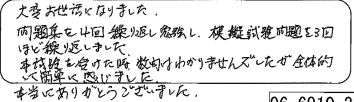 大変お世話になりました。
問題集を4回繰り返し勉強し、模擬試験問題を3回
ほど繰り返しました。
本試験を受けた時、数問わかりませんでしたが全体的
に簡単に感じました。
本当にありがとうございました。